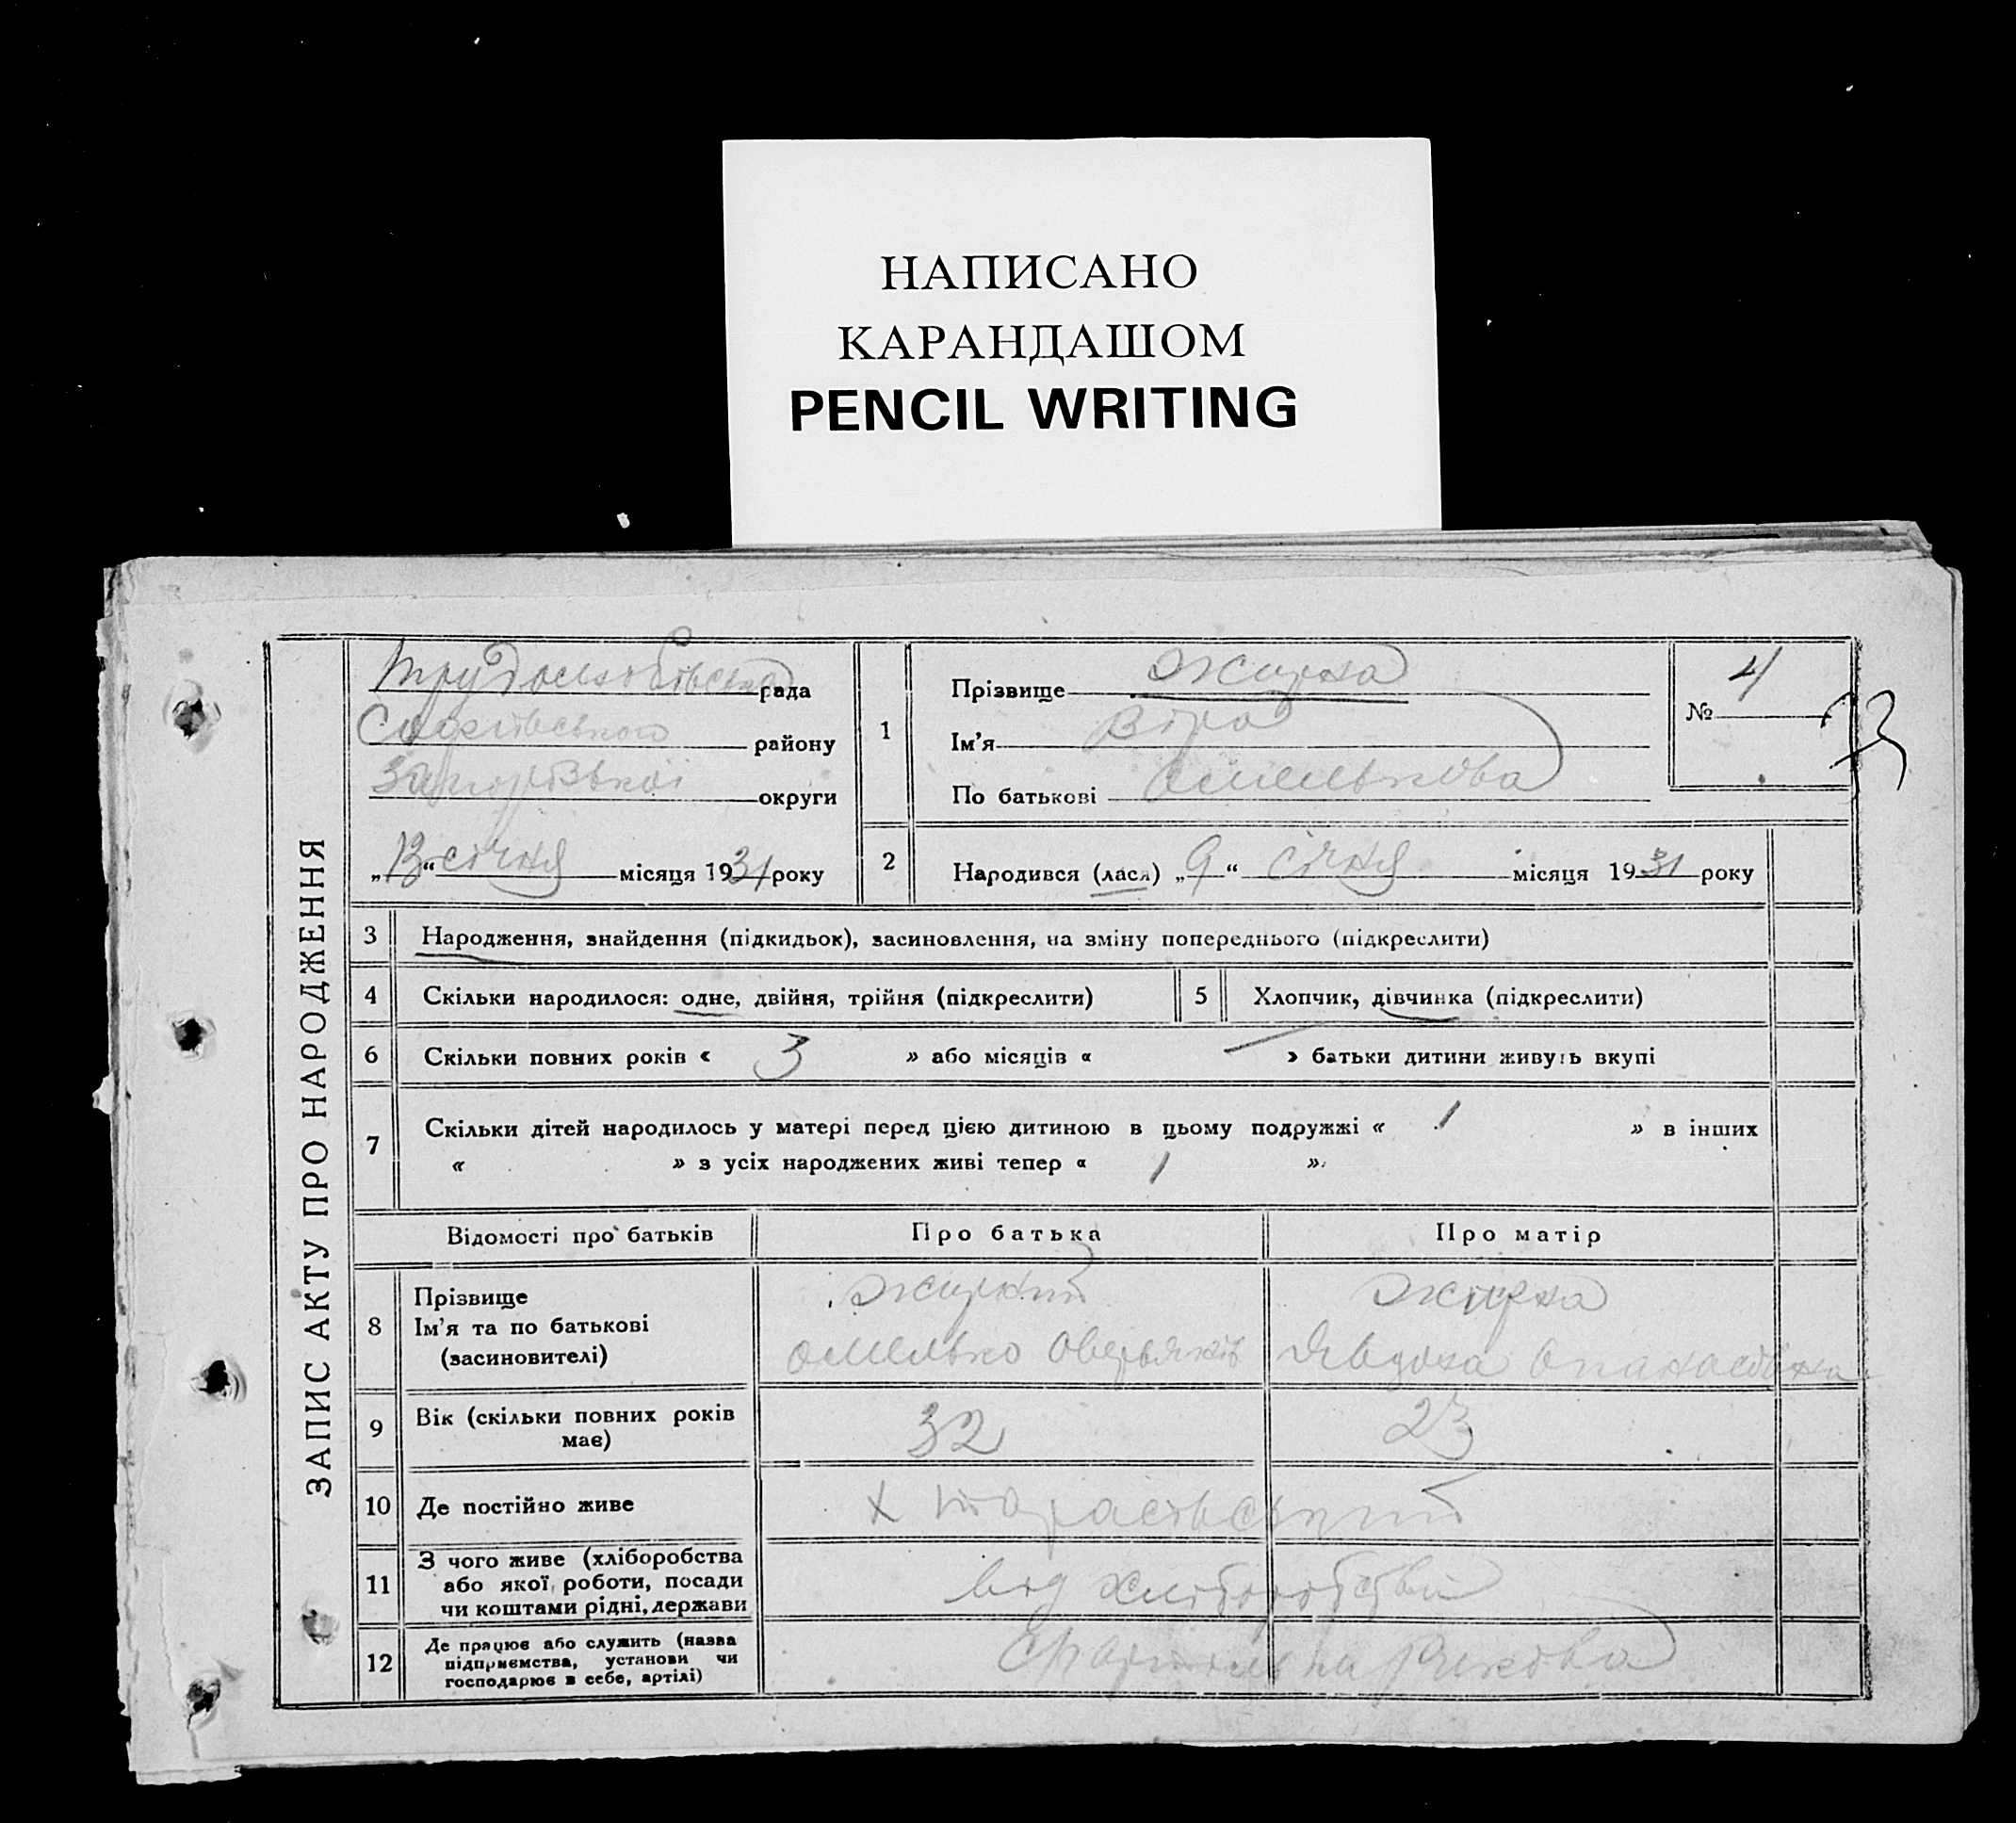 НАПИСАНО
КАРАНДАШОМ
PENCIL WRITING
ЗАПИС АКТУ ПРО НАРОДЖЕННЯ
Трудолюбівська рада
Софіївського району
Запорізької округи
„13“ січня місяця 1931 року
1
Прізвище Жирна
Ім'я Віра
По батькові Омелькова
№ 4
2 Народився (лася) „9“ січня місяця 1931 року
3 Народження, знайдення (підкидьок), засиновлення, на зміну попереднього (підкреслити)
4 Скільки народилося: одне, двійня, трійня (підкреслити) 5 Хлопчик, дівчинка (підкреслити)
6 Скільки повних років « 3 » або місяців « — » батьки дитини живуть вкупі
7 Скільки дітей народилось у матері перед цією дитиною в цьому подружжі « 1 » в інших
« » з усіх народжених живі тепер « 1 »
Відомості про батьків Про батька Про матір
8 Прізвище Жирний Жирна
Ім'я та по батькові Омелько Оверьянків Явдоха Опанасівна
(засиновителі)
9 Вік (скільки повних років 32 23
має)
10 Де постійно живе х Тарасівський
11 З чого живе (хліборобства
або якої роботи, посади від хліборобства
чи коштами рідні, держави
12 Де працює або служить (назва
підприємства, установи чи
господарює в себе, артілі)